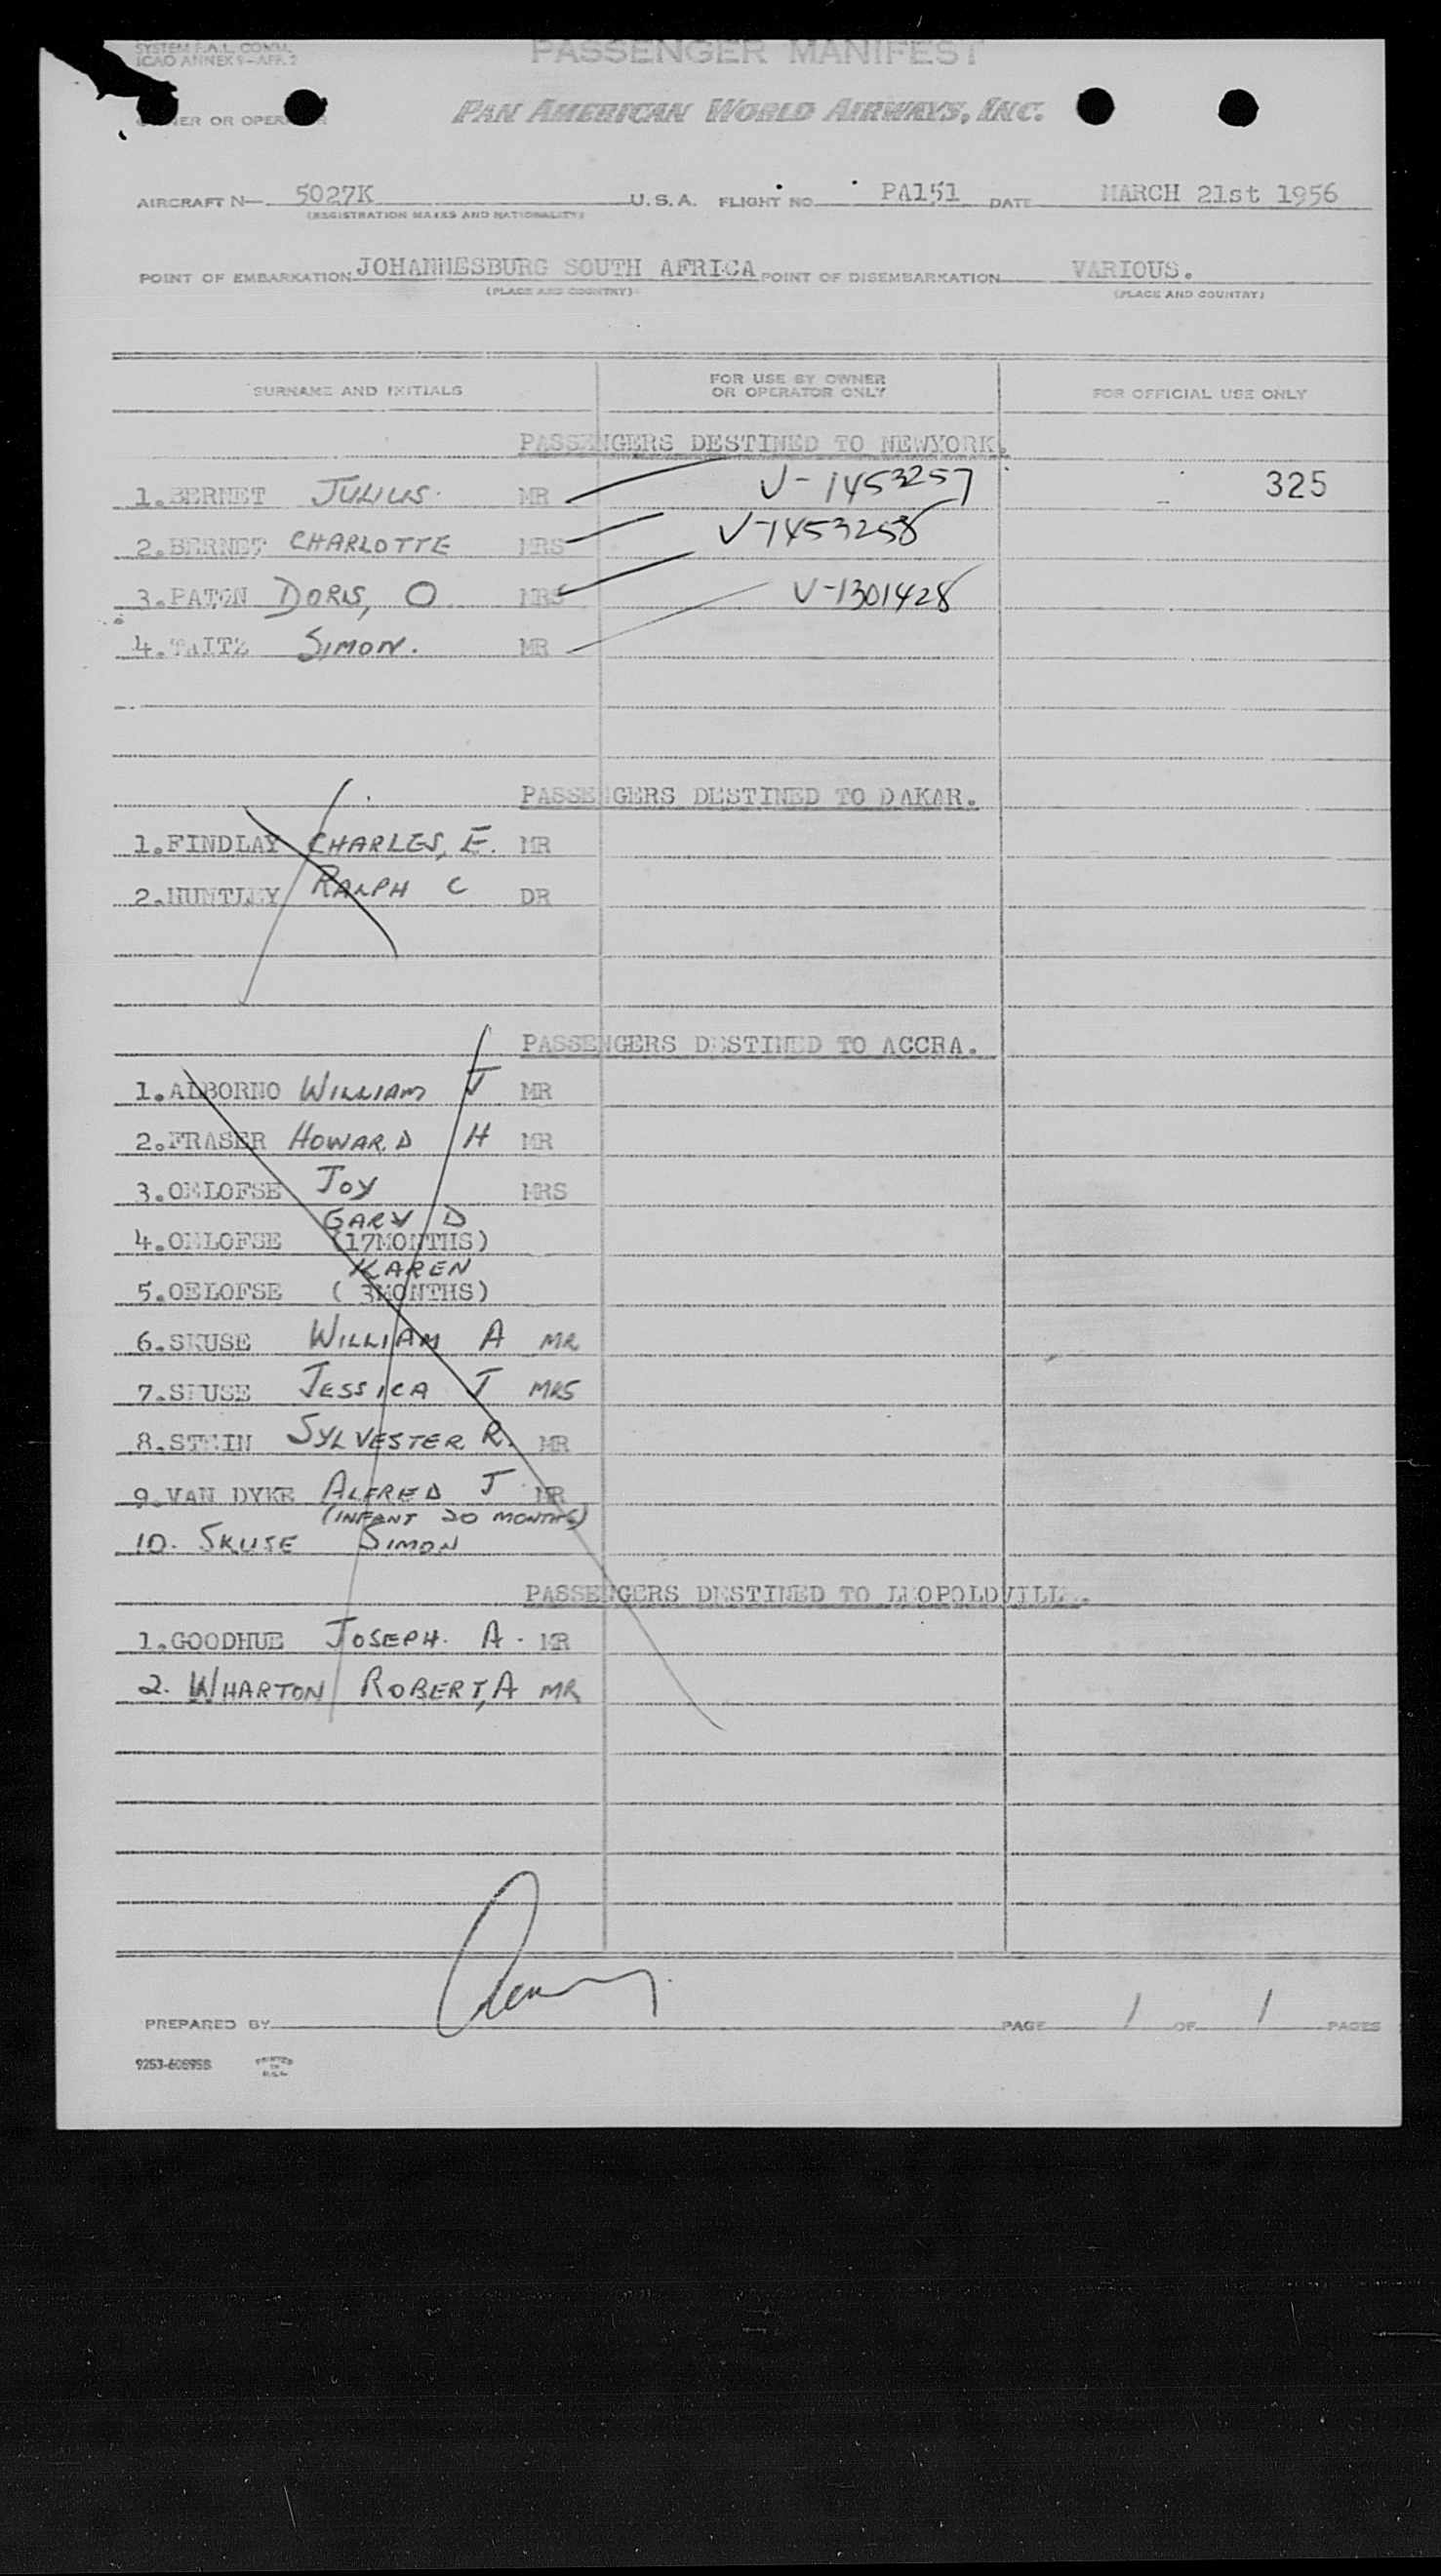 SYSTEM F.A.L. COMM.
ICAO ANNEX 9-APP. 2
PASSENGER MANIFEST
OWNER OR OPERATOR
PAN AMERICAN WORLD AIRWAYS, INC.
AIRCRAFT N— 5027K U.S.A. FLIGHT NO. PA151 DATE MARCH 21st 1956
(REGISTRATION MARKS AND NATIONALITY)
POINT OF EMBARKATION JOHANNESBURG SOUTH AFRICA POINT OF DISEMBARKATION VARIOUS.
(PLACE AND COUNTRY) (PLACE AND COUNTRY)
SURNAME AND INITIALS FOR USE BY OWNER OR OPERATOR ONLY FOR OFFICIAL USE ONLY
PASSENGERS DESTINED TO NEWYORK.
1.BERNET JULIUS. MR V-1453257 325
2.BERNET CHARLOTTE MRS V-1453258
3.PATON DORIS, O MRS V-1301428
4.TAITZ SIMON. MR
PASSENGERS DESTINED TO DAKAR.
1.FINDLAY CHARLES, E. MR
2.HUNTLEY RALPH C DR
PASSENGERS DESTINED TO ACCRA.
1.ALBORNO WILLIAM J MR
2.FRASER HOWARD H MR
3.OELOFSE JOY MRS
GARY D
4.OELOFSE (17MONTHS)
KAREN
5.OELOFSE ( 3MONTHS)
6.SKUSE WILLIAM A MR
7.SKUSE JESSICA J MRS
8.STEIN SYLVESTER R. MR
9.VAN DYKE ALFRED J MR
(INFANT 20 MONTHS)
10. SKUSE SIMON
PASSENGERS DESTINED TO LEOPOLDVILLE.
1.GOODHUE JOSEPH. A. MR
2. WHARTON ROBERT, A MR
PREPARED BY PAGE 1 OF 1 PAGES
9253-608958 PRINTED IN U.S.A.